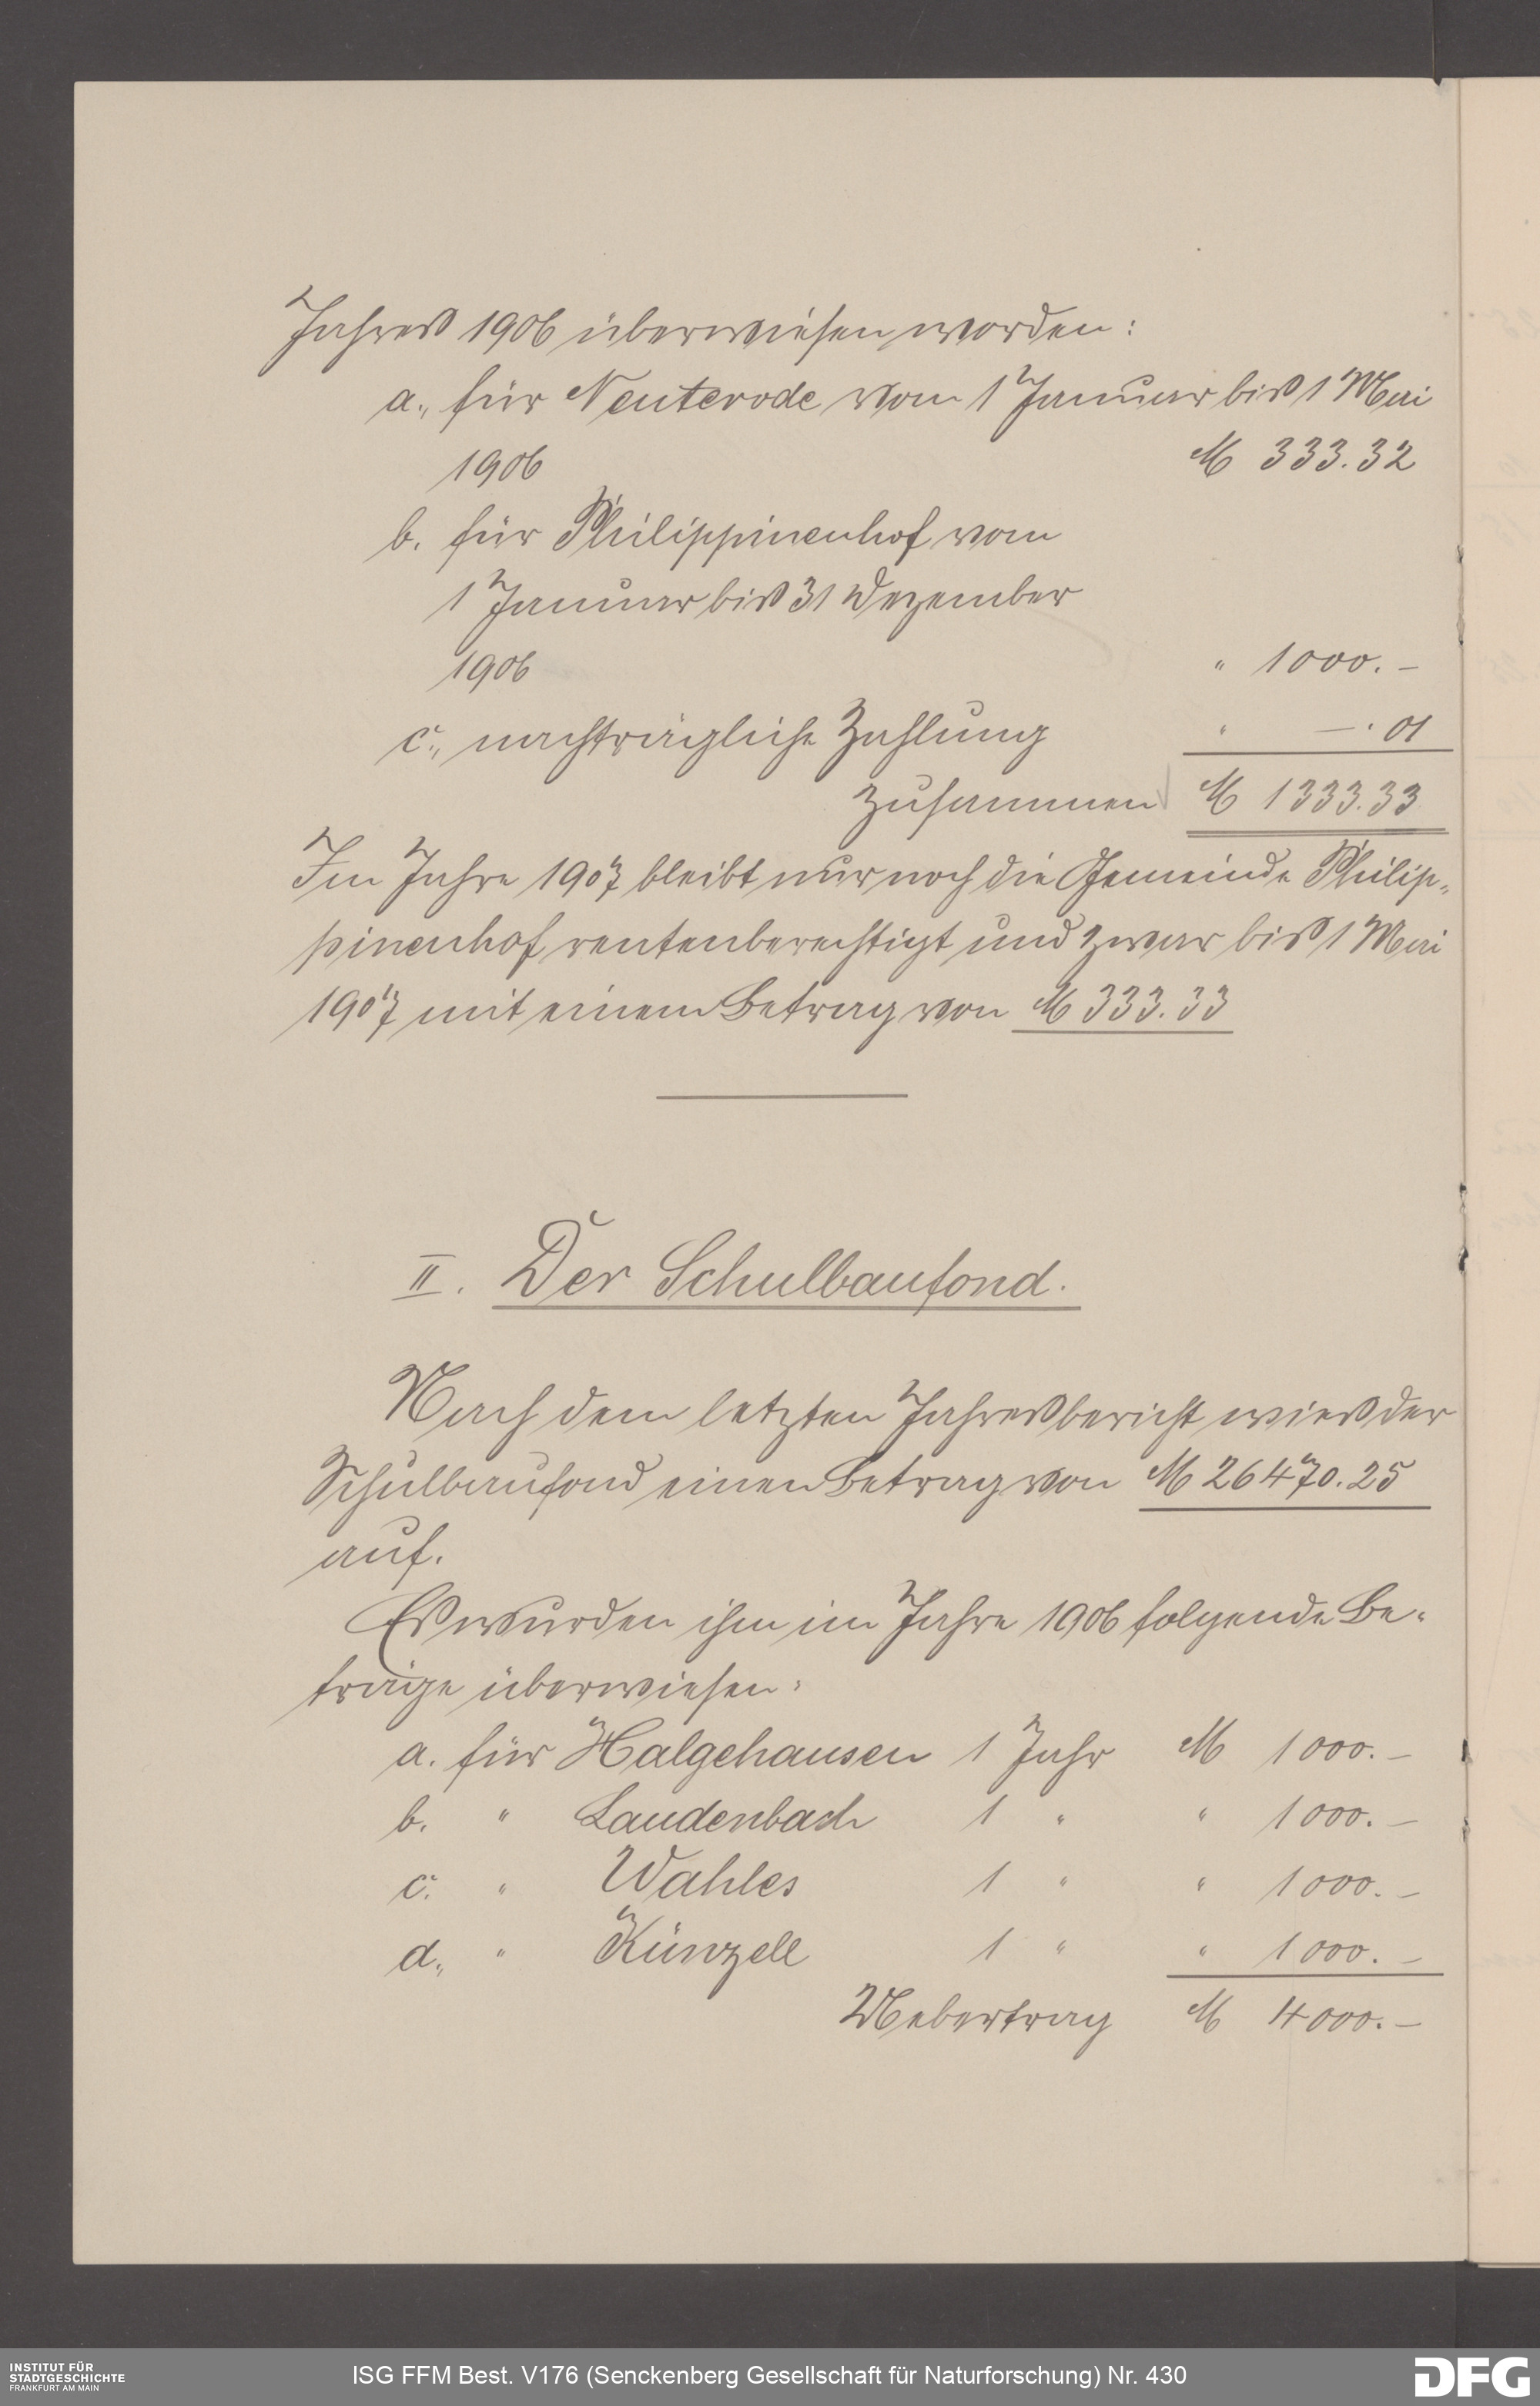 Jahres 1906 überwiesen worden:
a., für Neuterode vom 1 Januar bis 1 Mai
1906 M 333.32
b. für Philippinenhof vom
1 Januar bis 31 Dezember
1906 " 1000.–
c., nachträgliche Zahlung " –.01
Zusammen M 1333.33
Im Jahre 1907 bleibt nur noch die Gemeinde Philip-
pinenhof rentenberechtigt und zwar bis 1 Mai
1907 mit einem Betrag von M 333.33
II. Der Schulbaufond.
Nach dem letzten Jahresbericht wies der
Schulbaufond einen Betrag von M 26470.25
auf.
Es wurden ihm im Jahre 1906 folgende Be-
träge überwiesen:
a. für Halgehausen 1 Jahr M 1000.–
b. " Laudenbach 1 " " 1000.–
c. " Wahles 1 " " 1000.–
d., " Künzell 1 " " 1000.–
Uebertrag M 4000.–
INSTITUT FÜR
STADTGESCHICHTE
FRANKFURT AM MAIN
ISG FFM Best. V176 (Senckenberg Gesellschaft für Naturforschung) Nr. 430
DFG